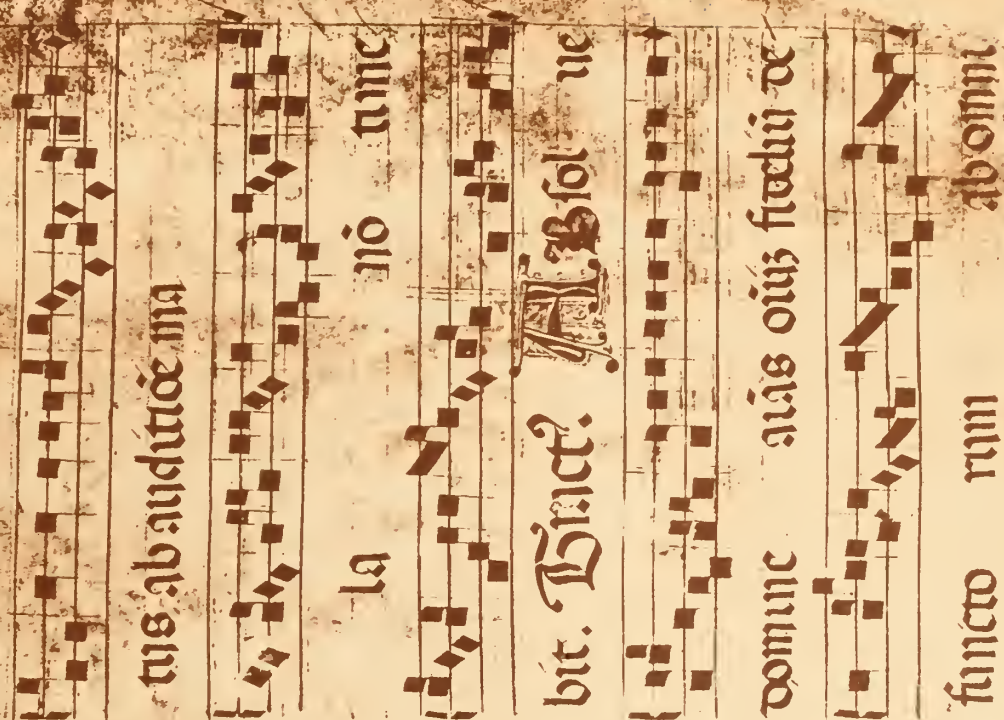 tus ab auditiōe ma
la nō time
bit. Tractꝰ. Absol ue
domine aīas oīuʒ fideliū de
functo rum ab omni